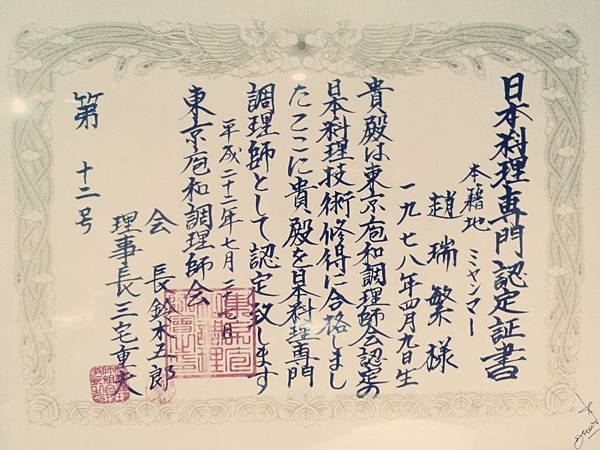 日本料理専門認定証書
本籍地 ミャンマー
趙瑞繁様
一九七八年四月九日生
貴殿は東京庖和調理師会認定の
日本料理技術修得に合格しまし
たここに貴殿を日本料理専門
調理師として認定致します
平成二十二年七月二七日
東京庖和調理師会
会長 鈴木五郎
理事長 三宅重夫
第十二号